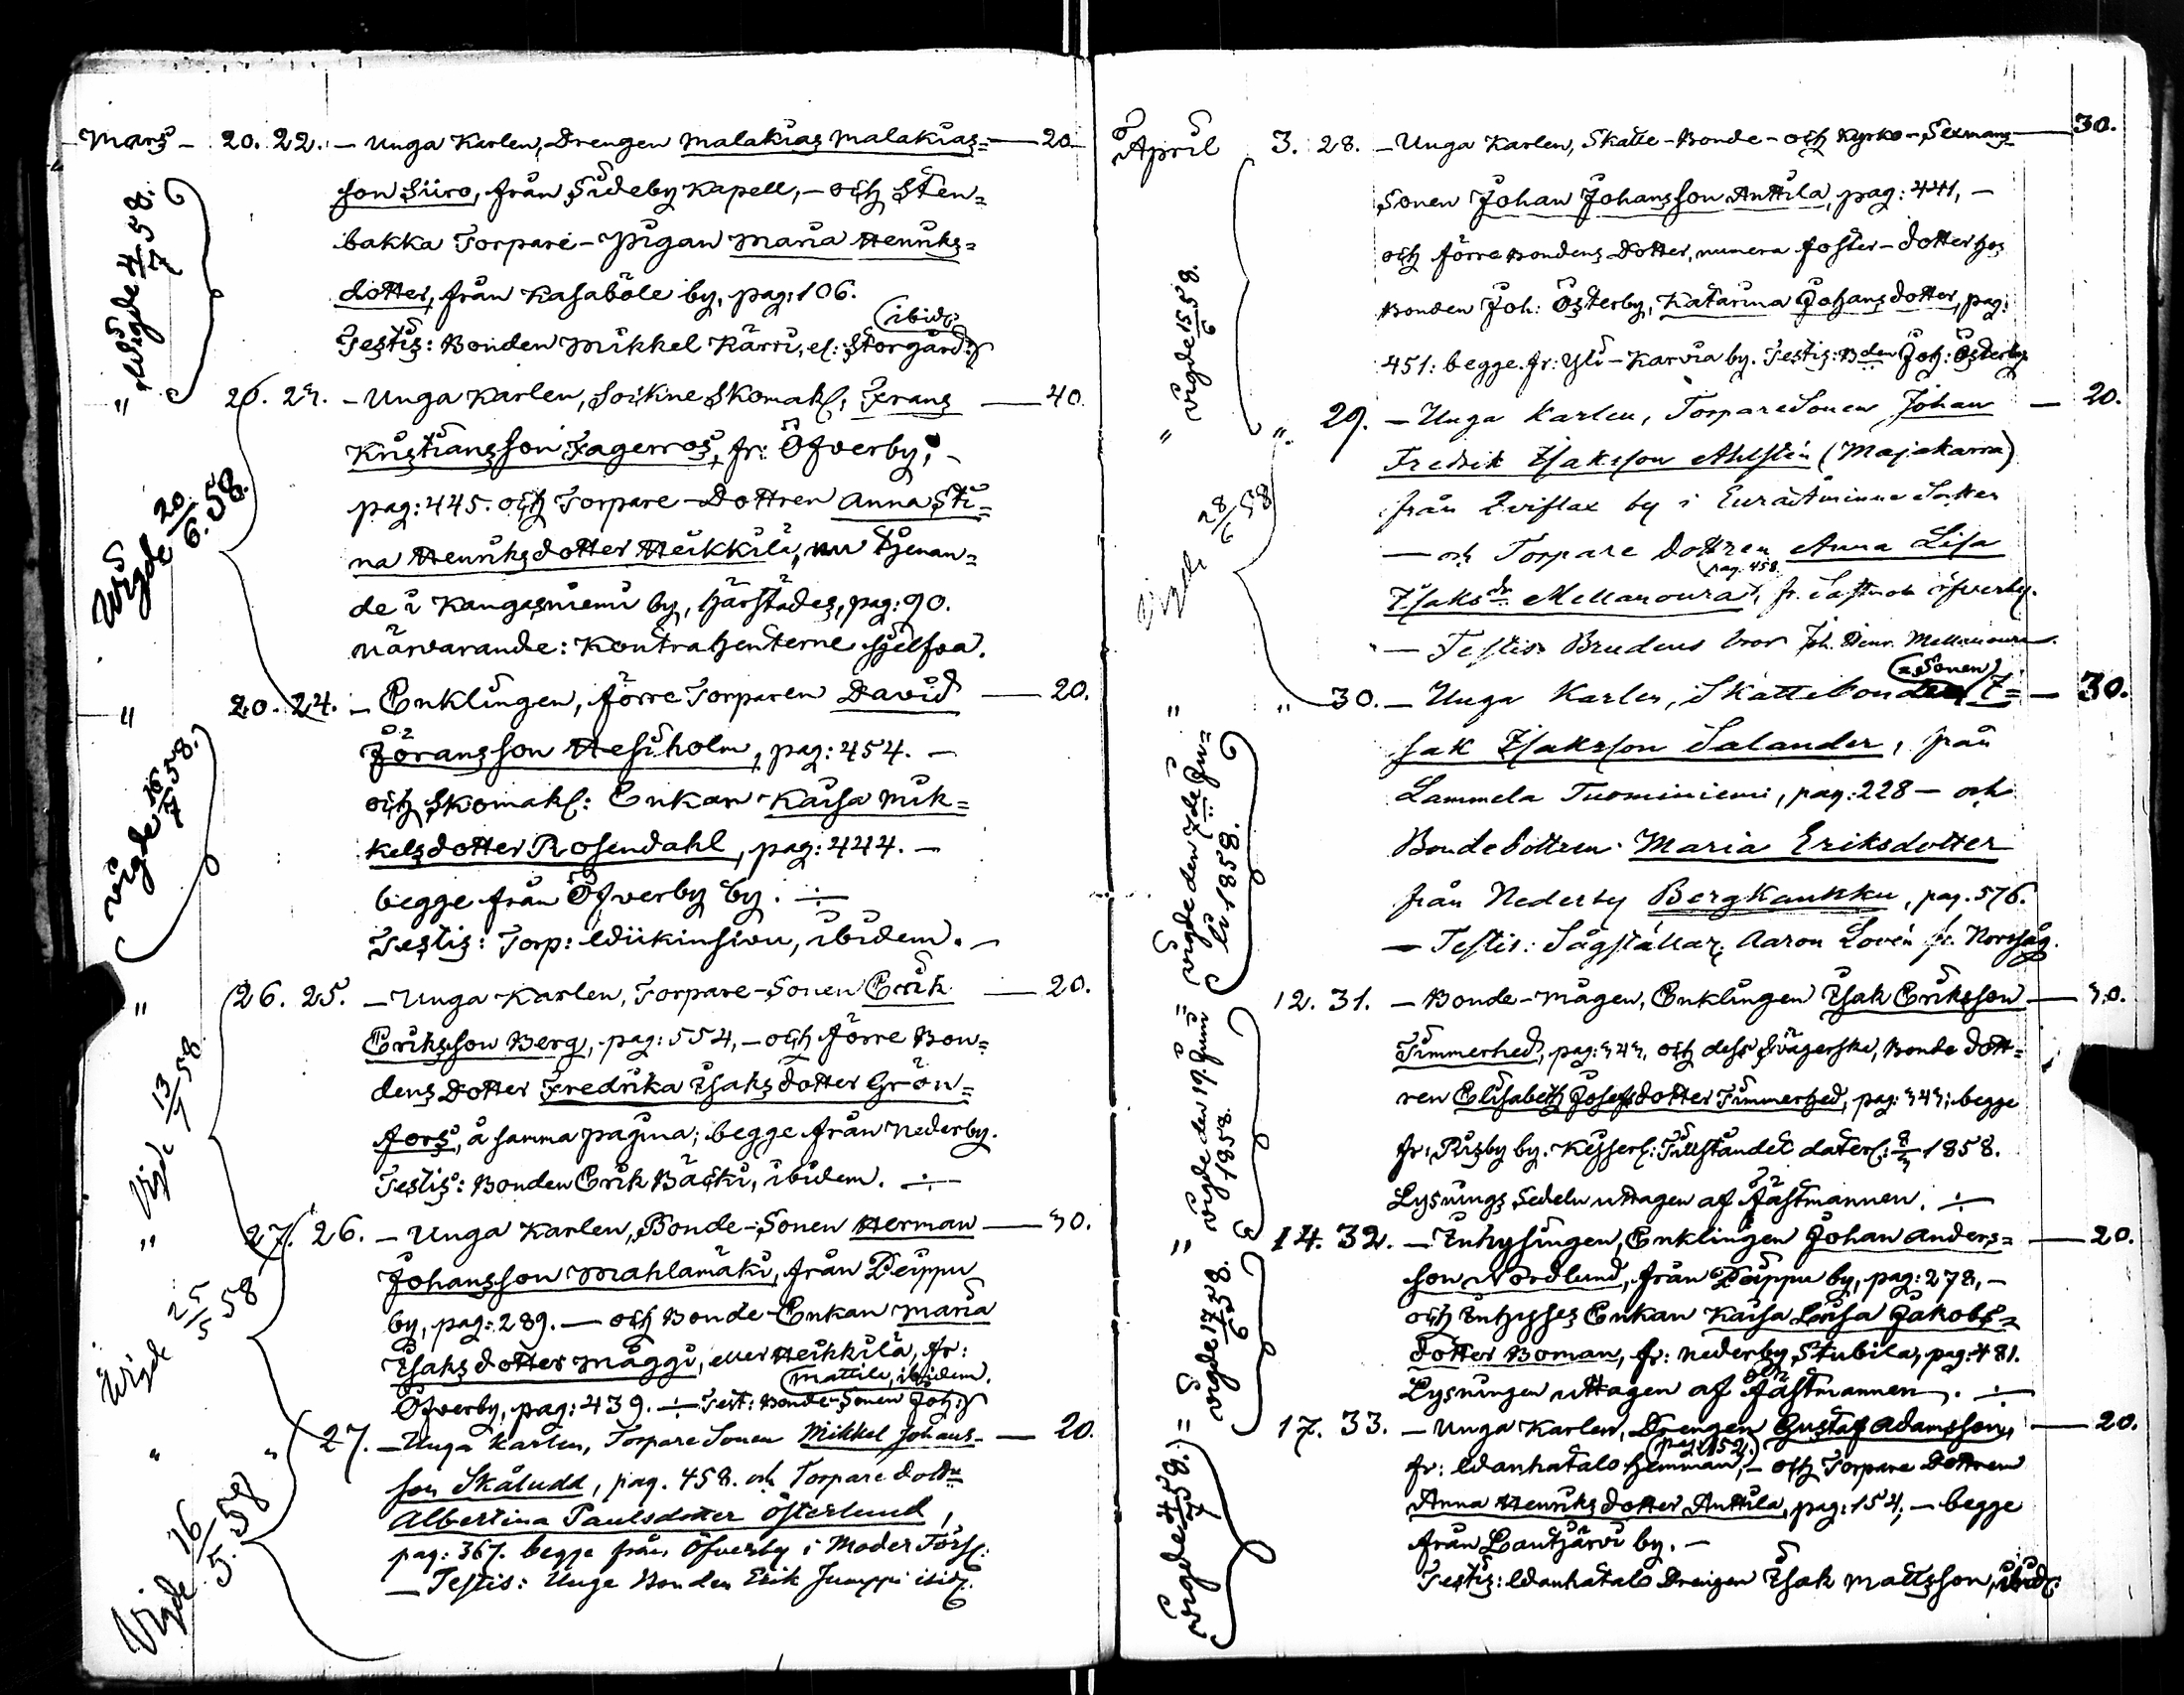 Mars – 20. 22. – Unga Karlen, Drengen Malakias Malakias= — 20.
son Siiro, från Sideby Kapell, – och Sten=
bakka Torpare – Pigan Maria Henriks=
dotter, från Kasaböle by, pag: 106.
(ibid:
Testis: Bonden Mikkel Kärri, el: Storgård:)
" Wigde 4/7 58.
26. 23. – Unga Karlen, Sockne Skomak: Frans — 40.
Kristiansson Fagerros, fr: Öfverby; –
pag: 445. och Torpare – Dottren Anna Sti=
na Henriksdotter Heikkilä, nu tjenan=
de i Kangasniemi by, härstädes, pag: 90.
närvarande: Kontrahenterne sjelfva.
Wigde 20/6. 58.
" 20. 24. – Enklingen, förre Torparen David — 20.
Jöransson Hesiholm, pag: 454. –
och Skomak: Enkan Kaisa Mik=
kelsdotter Rosendahl, pag: 444. –
begge från Öfverby by. ÷
Testis: Torp: Wiikinsivu, ibidem. –
Wigde 16/7 58.
" 26. 25. – Unga Karlen, Torpare-Sonen Erik — 20.
Eriksson Berg, pag: 554, – och förre Bon=
dens Dotter Fredrika Isaksdotter Grön=
fors, å samma pagina; begge från Nederby.
Testis: Bonden Erik Bäcki, ibidem. ÷
Vigde 13/7 58
" 27. 26. – Unga Karlen, Bonde-Sonen Herman — 30.
Johansson Mahlamäki, från Peippu
by, pag: 289. – och Bonde-Enkan Maria
Isaksdotter Mäggi, eller Heikkilä, fr:
(Mattila, ibidem.
Öfverby, pag: 439. ÷ Test: Bonde-Sonen Joh:)
Wigde 25/5 58
" " 27. – Unga Karlen, Torpare Sonen Mikkel Johans- — 20.
son Skäludd, pag. 458. och Torpare dottn
Albertina Paulsdotter Österlund,
pag: 367. begge från Öfverby i Moder Förs:
– Testis: Unge Bonden Erik Jumppi ibid:
Vigde 16/5. 58
April 3. 28. – Unga Karlen, Skatte-Bonde- och Kyrko-Sexmans — 30.
Sonen Johan Johansson Anttila, pag: 441, –
och förre Bondens Dotter, numera foster-dotter hos
Bonden Joh: Österby, Katarina Johansdotter, pag:
451: begge fr: Yli-Karvia by. Testis: Bden Joh: Österby
" Vigde 15/6 58.
". 29. – Unga Karlen, Torpare Sonen Johan — 20.
Fredrik Isaksson Ahlstén (Majakarra)
från Irjflax by i Euraåminne Socken
– och Torpare Dottren Anna Lisa
(pag. 458.
Isaksdr Mellanoura), fr. Sastmola öfverby.
– Testis Brudens bror Joh. Henr. Mellanoura.
Vigde 28/6 58
(a Sonen)
" " 30. – Unga Karlen, Skattebonden I= — 30.
sak Isaksson Salander, från
Lammela Tuominiemi, pag: 228 – och
Bondedottren Maria Eriksdotter
från Nederby Bergkaukku, pag. 576.
– Testis: Sågställar: Aaron Lovén fr. Norrsåg.
Vigde den 7de Ju=
li 1858.
12. 31. – Bonde-Mågen, Enklingen Isak Eriksson — 30.
Timmerhed, pag: 343, och dess Svägerska, Bonde dott=
ren Elisabeth Josefsdotter Timmerhed, pag: 343; begge
fr: Riisby by. Kejserl: Tillståndet dater: 8/3 1858.
Lysnings Sedeln uttagen af Fästmannen. ÷
= Vigde den 19. Juni =
1858.
" 14. 32. – Inhysingen, Enklingen Johan Anders= — 20.
son Nordlund, från Peippu by, pag: 278, –
och Inhyses Enkan Kaisa Lisa Jakobs=
dotter Boman, fr: Nederby, Stubila, pag: 481.
Lysningen uttagen af Fästmannen. ÷
Vigde 17/6 58.
17. 33. – Unga Karlen, Drengen Gustaf Adamsson, — 20.
(pag: 152.)
fr: Wanhatalo Hemman, – och Torpare Dottren
Anna Henriksdotter Anttila, pag: 154; – begge
från Lautjärvi by. –
Testis: Wanhatalo Drengen Isak Mattsson, ibid:
Vigde 4/7 58.) =